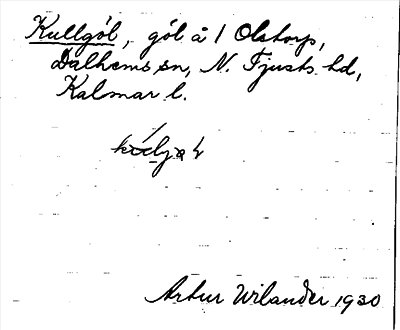 Kullgöl, göl å 1 Olstorp,
Dalhems sn, N. Tjusts hd,
Kalmar l.
Artur Wilander 1930